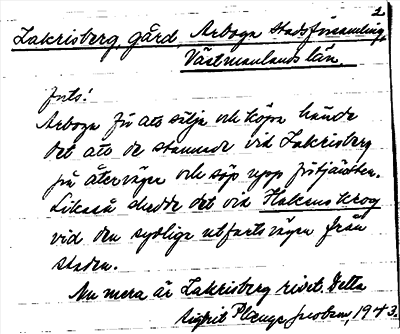 2
Lakrisberg, gård, Arboga Stadsförsamling,
Västmanlands län.
forts!
Arboga för att sälja och köpa hände
det att de stannade vid Lakrisberg
på återvägen och söp upp förtjänsten.
Likaså skedde det vid Hakans Krog
vid den sydliga utfartsvägen från
staden.
Nu mera är Lakrisberg rivet. Detta
Sigfrid 1943.